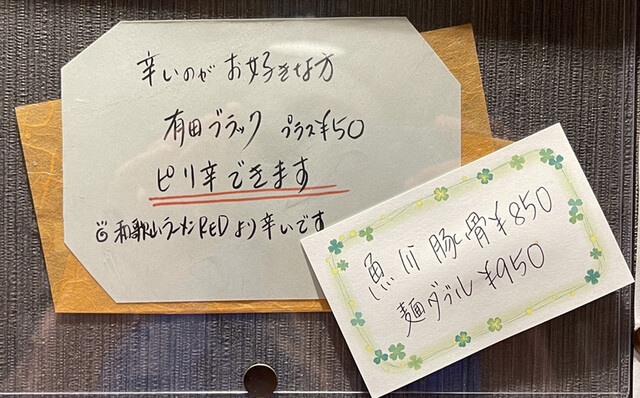 辛いのが お好きな方
有田ブラック プラス¥50
ピリ辛できます
和歌山ラーメンREDより辛いです
魚川 豚骨¥850
麺ダブル¥950